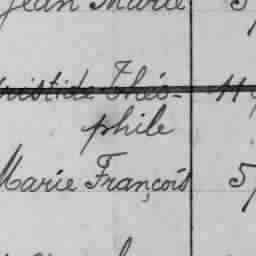 Jean Marie 5
Aristide Théo- 44
phile
Marie François 57